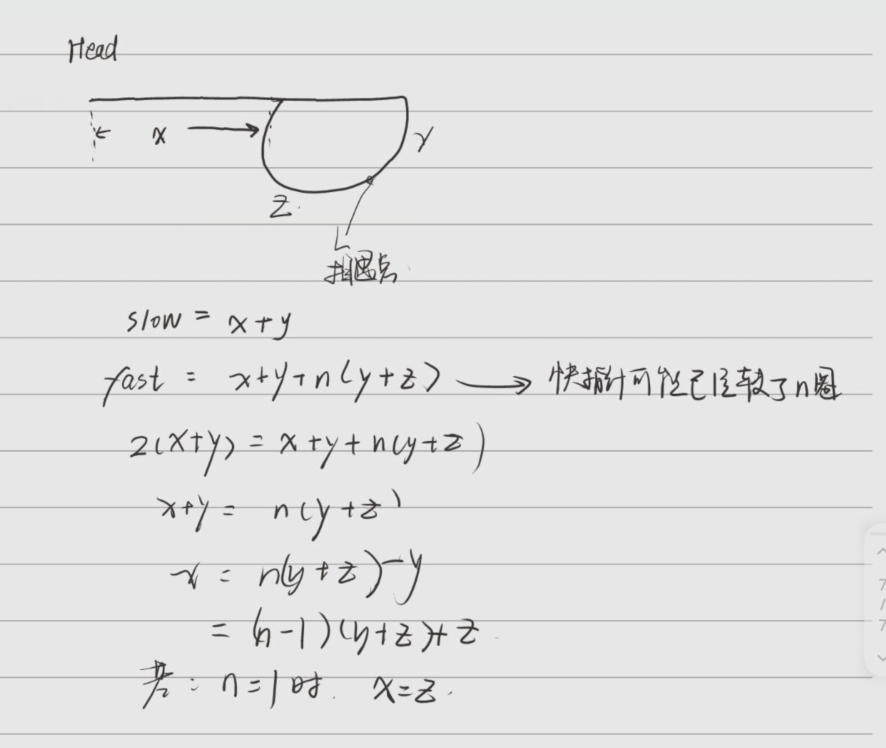 Head
x
y
z
相遇点
slow = x+y
fast = x+y+n(y+z) → 快指针可能已经转了n圈
2(x+y) = x+y+n(y+z)
x+y = n(y+z)
x = n(y+z)-y
= (n-1)(y+z)+z
若: n=1时. x=z.